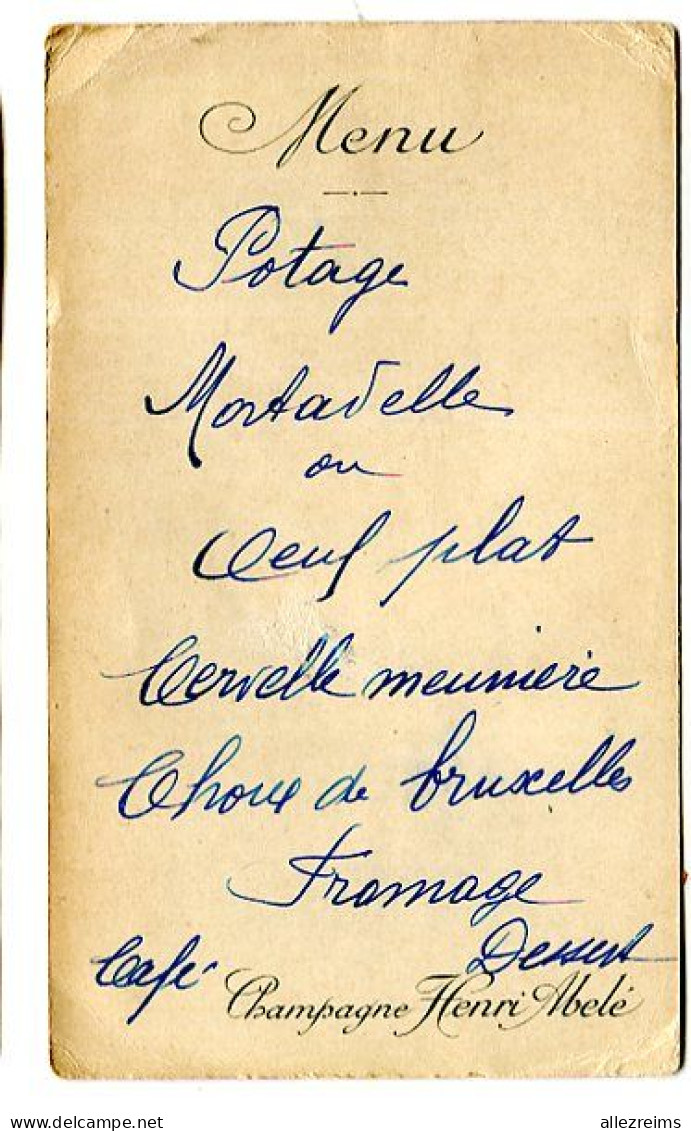 Menu
Potage
Mortadelle
ou
Oeuf plat
Cervelle meunière
Choux de bruxelles
Fromage
Dessert
Café
Champagne Henri Abelé
allezreims